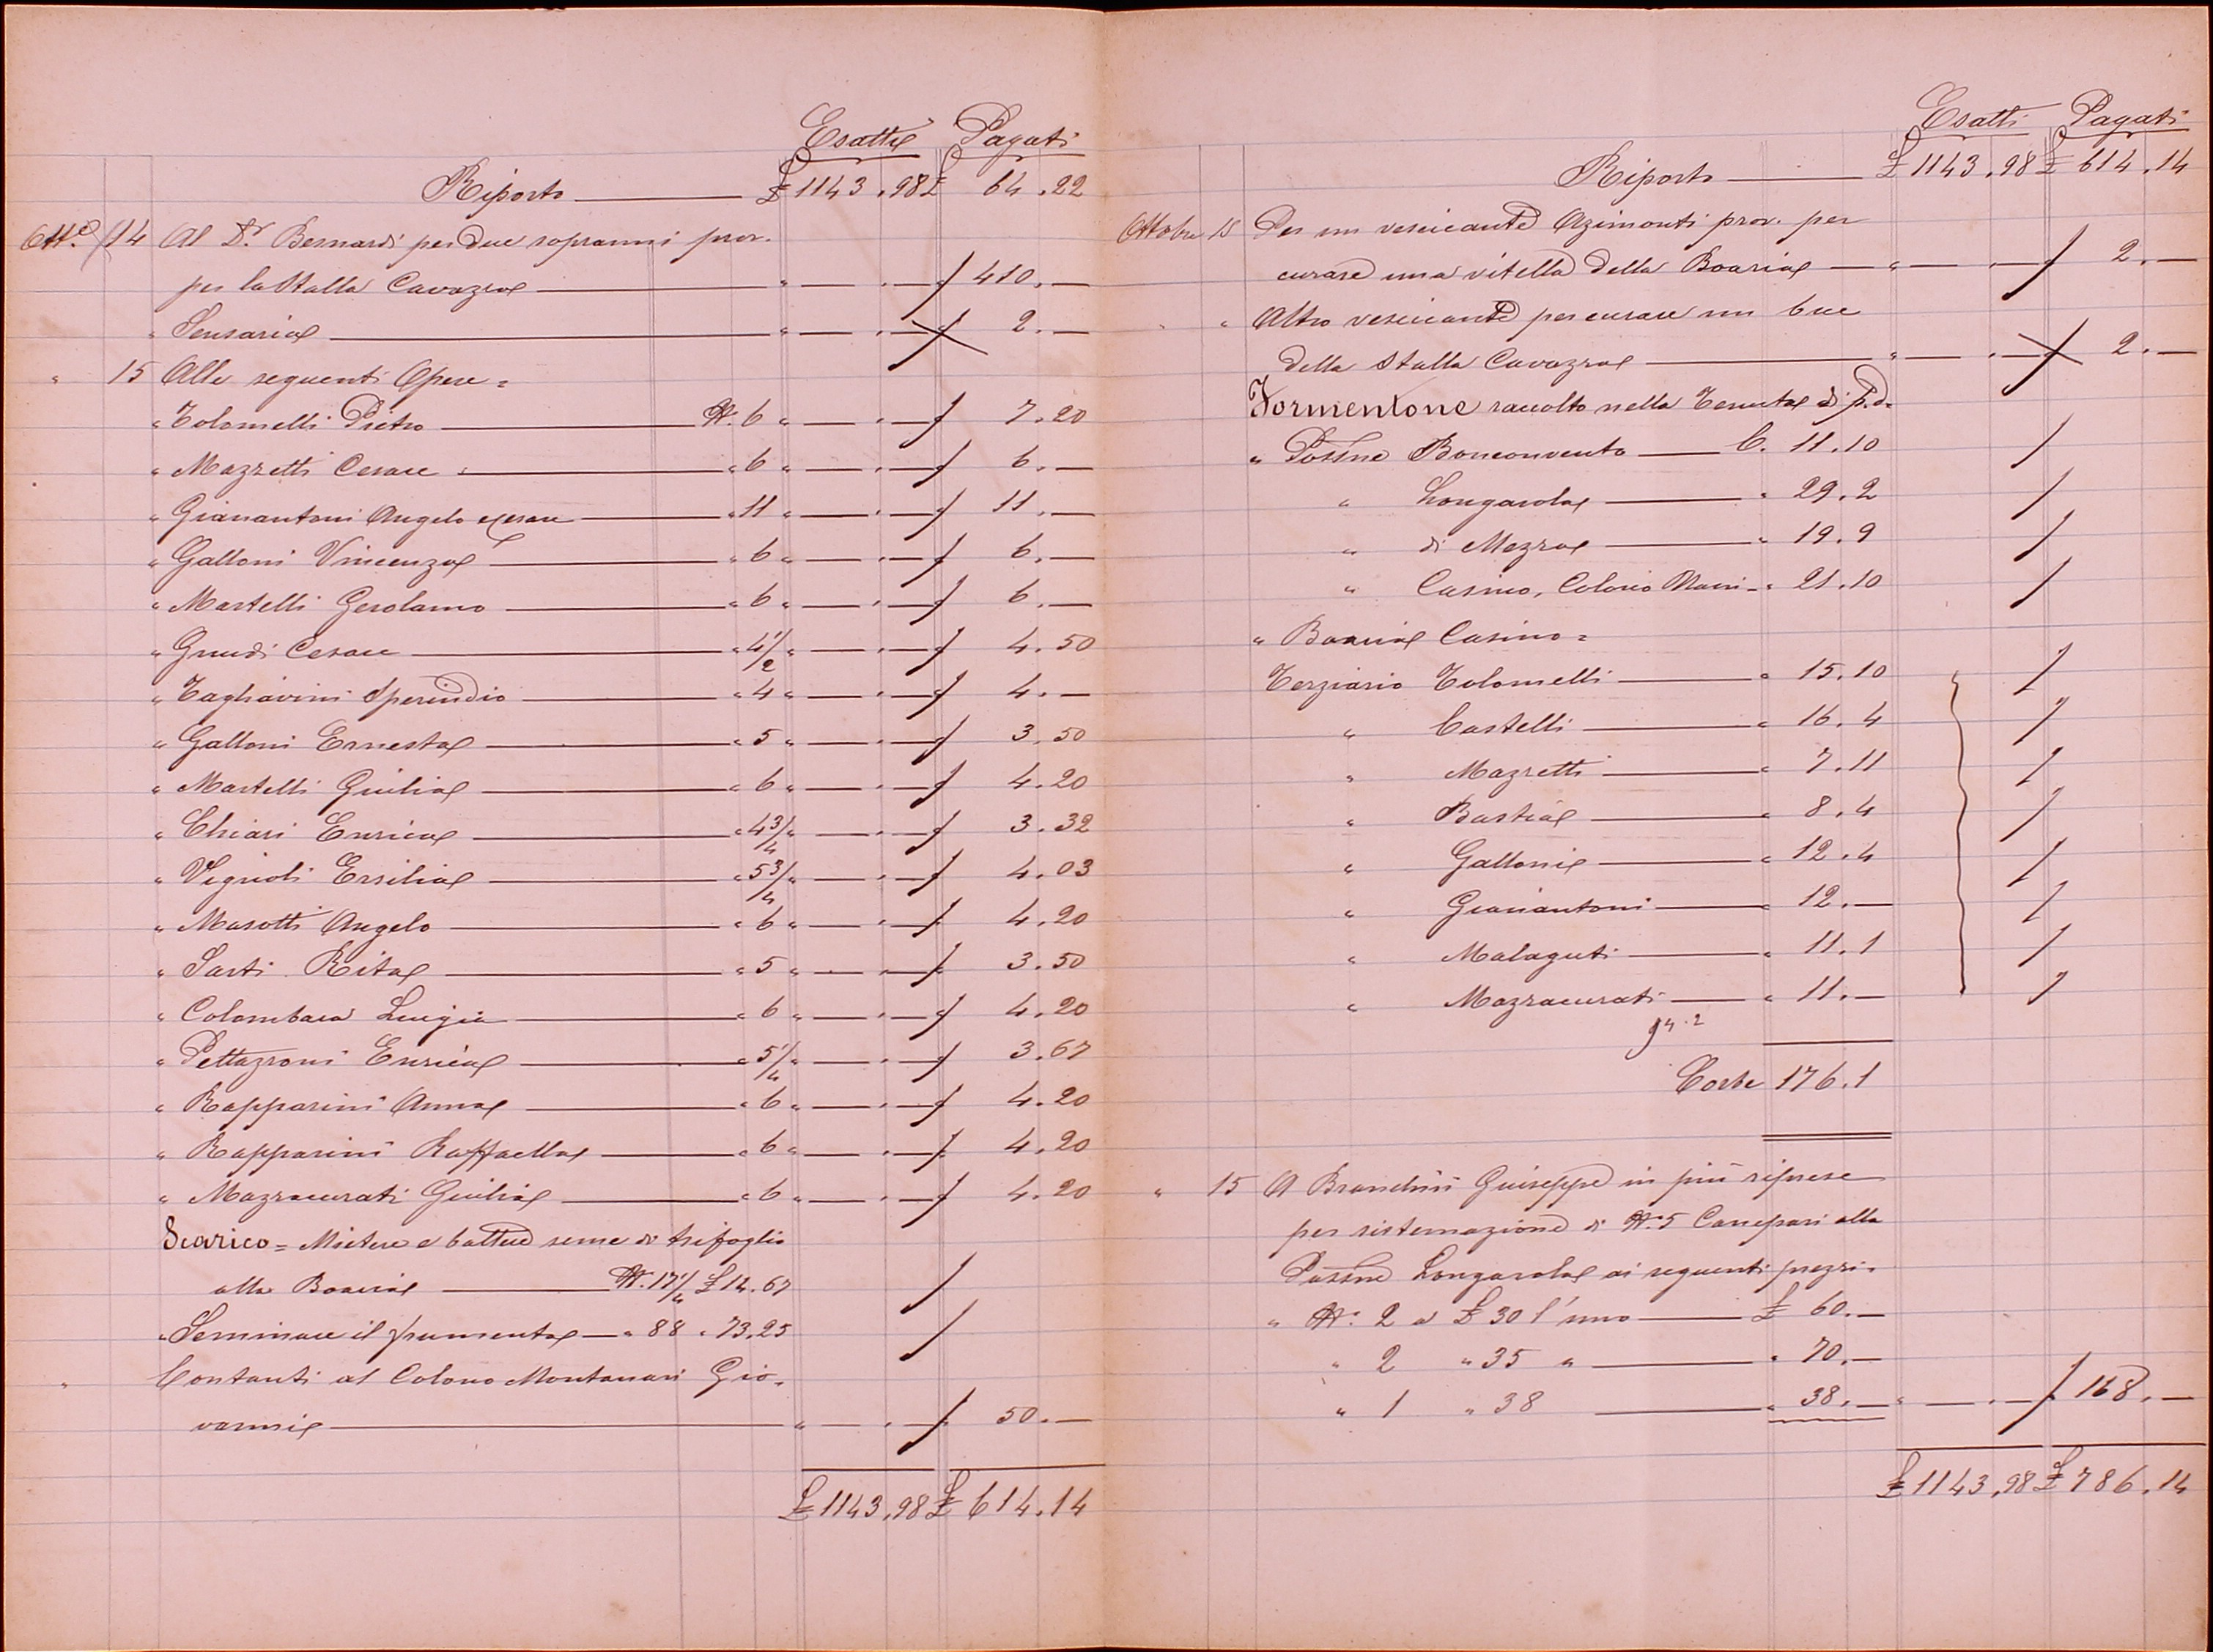 Esatti Pagati
Riporto £ 1143.98 £ 64.22
Ott.e 14 Al D.r Bernardi per due sopranni prov.
per la Stalla Cavazza " — . — " 410. —
" Sensaria " — . — " 2. —
" 15 Alle seguenti Opere =
" Tolomelli Pietro N. 6 " — . — " 7.20
" Mazzetti Cesare " 6 " — . — " 6. —
" Gianantoni Angelo e Cesare " 11 " — . — " 11. —
" Galloni Vincenza " 6 " — . — " 6. —
" Martelli Gerolamo " 6 " — . — " 6. —
" Grudi Cesare " 4 1/2 " — . — " 4.50
" Tagliavini Sperindio " 4 " — . — " 4. —
" Galloni Ernesta " 5 " — . — " 3.50
" Martelli Giulia " 6 " — . — " 4.20
" Chiari Enrica " 4 3/4 " — . — " 3.32
" Vignoli Ersilia " 5 3/4 " — . — " 4.03
" Masotti Angelo " 6 " — . — " 4.20
" Sarti Rita " 5 " — . — " 3.50
" Colombara Luigia " 6 " — . — " 4.20
" Pettazzoni Enrica " 5 1/4 " — . — " 3.67
" Rapparini Anna " 6 " — . — " 4.20
" Rapparini Raffaella " 6 " — . — " 4.20
" Mazzacurati Giulia " 6 " — . — " 4.20
Scarico = Mietere e battere seme di trifoglio
alla Boaria N. 17 1/4 £ 14.67
" Seminare il frumento " 88 " 73.25
" Contanti al Colono Montanari Gio-
vanni " — . — " 50. —
£ 1143.98 £ 614.14
Esatti Pagati
Riporto £ 1143.98 £ 614.14
Ottobre 15 Per un vescicante Azimonti prov. per
curare una vitella della Boaria " — . — " 2. —
" " Altro vescicante per curare un bue
della Stalla Cavazza " — . — " 2. —
Formentone raccolto nella Tenuta di p.d.
" Poss.ne Bonconvento C. 11.10
" Longarola " 29.2
" di Mezzo " 19.9
" Casino, Colono Nanni " 21.10
" Boaria Casino =
Terziario Tolomelli " 15.10
" Castelli " 16.4
" Mazzetti " 7.11
" Bastia " 8.4
" Galloni " 12.4
" Gianantoni " 12. —
" Malaguti " 11.1
" Mazzacurati " 11. —
94.2
Corbe 176.1
" 15 A Branchini Giuseppe in più riprese
per sistemazione di N. 5 Canepari alla
Poss.ne Longarola ai seguenti prezzi.
" N. 2 a £ 30 l'uno £ 60. —
" 2 " 35 " " 70. —
" 1 " 38 " 38. — " — . — " 168. —
£ 1143.98 £ 786.14